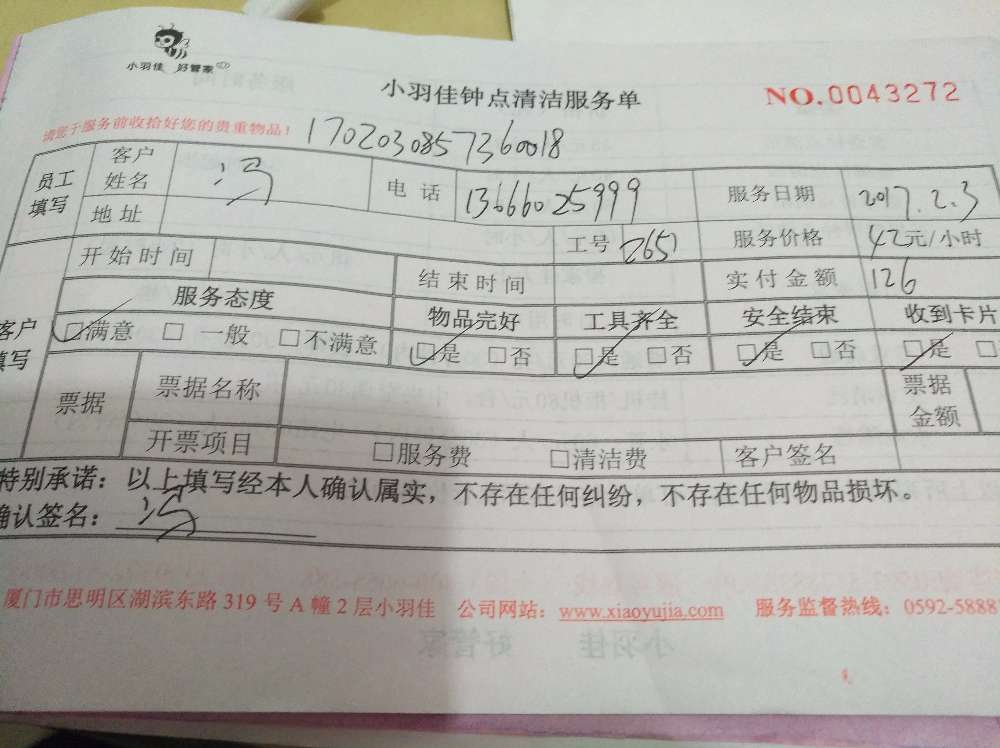 小羽佳 好管家
小羽佳钟点清洁服务单
NO.0043272
请您于服务前收拾好您的贵重物品！
1702030857360018
员工填写 客户姓名 冯 电话 13666025999 服务日期 2017.2.3
地址 工号 2651 服务价格 42元/小时
开始时间 结束时间 实付金额 126
服务态度 物品完好 工具齐全 安全结束 收到卡片
客户填写 □满意 □一般 □不满意 □是 □否 □是 □否 □是 □否 □是 □
票据 票据名称 票据金额
开票项目 □服务费 □清洁费 客户签名
特别承诺：以上填写经本人确认属实，不存在任何纠纷，不存在任何物品损坏。
确认签名：冯
厦门市思明区湖滨东路 319 号 A 幢 2 层小羽佳 公司网站：www.xiaoyujia.com 服务监督热线：0592-5888